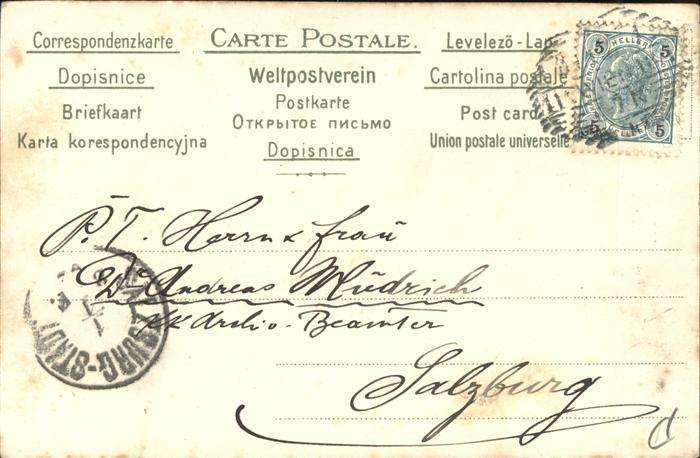 Correspondenzkarte
CARTE POSTALE.
Levelezö-Lap
Dopisnice
Weltpostverein
Cartolina postale
Briefkaart
Postkarte
Post card
Karta korespondencyjna
Открытое письмо
Union postale universelle
Dopisnica
5 HELLER 5
5 5
P. T. Herrn & Frau
Dr Andreas Mudrich
kk Archiv-Beamter
Salzburg
SALZBURG-STADT